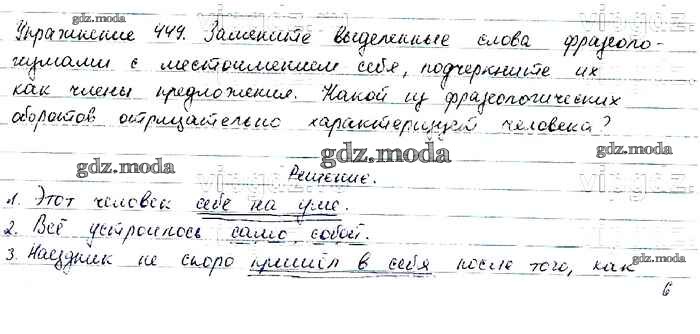 Упражнение 449. Замените выделенные слова фразеоло-
гизмами с местоимением себя, подчеркните их
как члены предложения. Какой из фразеологических
оборотов отрицательно характеризует человека?
gdz.moda
Решение.
1. Этот человек себе на уме.
2. Всё устроилось само собой.
3. Наездник не скоро пришёл в себя после того, как
6